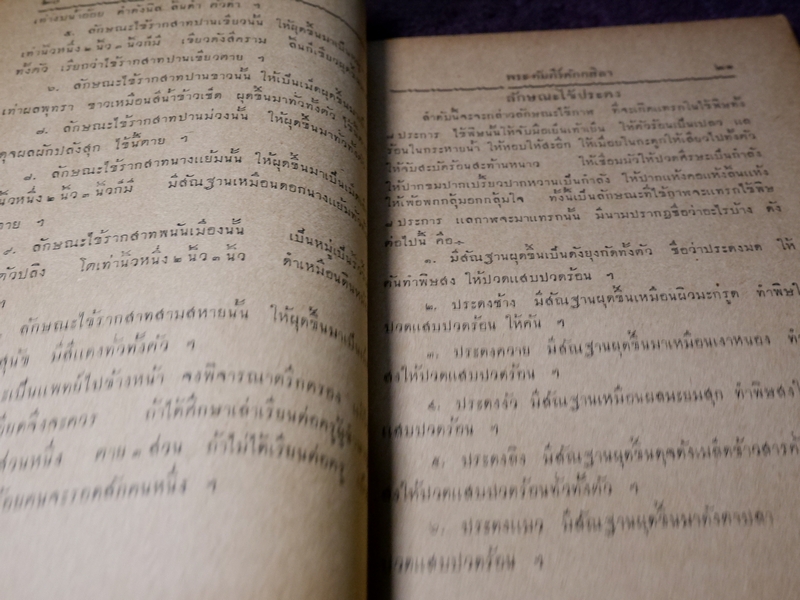 ๕. ลักษณะไข้รากสาทปานเขียวนั้น ให้ผุดขึ้นมาเป็น
เท่านิ้วหนึ่ง ๒ นิ้ว ๓ นิ้วก็มี เขียวดังสีคราม
ทั้งตัว เรียกว่าไข้รากสาทปานเขียวตาย ฯ
๖. ลักษณะไข้รากสาทปานขาวนั้น ให้เป็นเม็ดผุดขึ้น
เท่าผลพุทรา ขาวเหมือนสีน้ำข้าวเช็ด ผุดขึ้นมาทั่วทั้งตัว
๗. ลักษณะไข้รากสาทปานม่วงนั้น ให้ผุดขึ้นมาทั่วทั้ง
ดุจผลผักปลังสุก ไข้นี้ตาย ฯ
๘. ลักษณะไข้รากสาทนางแย้มนั้น ให้ผุดขึ้นมาเป็นเม็ด
นิ้วหนึ่ง ๒ นิ้ว ๓ นิ้วก็มี มีสัณฐานเหมือนดอกนางแย้ม
ตาย ฯ
๙. ลักษณะไข้รากสาทพนันเมืองนั้น เป็นหมู่เป็น
ตัวปลิง โตเท่านิ้วหนึ่ง ๒ นิ้ว ๓ นิ้ว ดำเหมือนดิน
ฯ
ลักษณะไข้รากสาทสามสหายนั้น ให้ผุดขึ้นมาเป็น
มีสีแดงทั่วทั้งตัว ฯ
จะเป็นแพทย์ไปข้างหน้า จงพิจารณาตรึกตรอง
จึงจะควร ถ้าได้ศึกษาเล่าเรียนต่อครู
ส่วนหนึ่ง ตาย ๑ ส่วน ถ้าไม่ได้เรียนต่อครู
ร้อยคนจะรอดสักคนหนึ่ง ฯ
พระคัมภีร์ตักกศิลา ๒๑
ลักษณะไข้ประดง
ลำดับนี้จะจะกล่าวลักษณะไข้กาฬ ที่จะเกิดแทรกในไข้พิษทั้ง
๘ ประการ ไข้พิษนั้นให้จับมือเย็นเท้าเย็น ให้ตัวร้อนเป็นเปลว แล
ร้อนในกระหายน้ำ ให้หอบให้สะอึก ให้เมื่อยในกระดูกให้เสียวไปทั้งตัว
ให้จับสะบัดร้อนสะท้านหนาว ให้เชื่อมมัวให้ปวดศีรษะเป็นกำลัง
ให้ปากขมปากเปรี้ยวปากหวานเป็นกำลัง ให้ปากแห้งคอแห้งฟันแห้ง
ให้เพ้อพกกลุ้มอกกลุ้มใจ ทั้งนี้เป็นลักษณะที่ไข้กาฬจะแทรกไข้พิษ
๘ ประการ แลกาฬจะมาแทรกนั้น มีนามปรากฏชื่อว่าอะไรบ้าง ดัง
ต่อไปนี้ คือ.-
๑. มีสัณฐานผุดขึ้นเป็นดังยุงกัดทั้งตัว ชื่อว่าประดงมด ให้
คันทำพิษสง ให้ปวดแสบปวดร้อน ฯ
๒. ประดงช้าง มีสัณฐานผุดขึ้นเหมือนผิวมะกรูด ทำพิษ
ปวดแสบปวดร้อน ให้คัน ฯ
๓. ประดงควาย มีสัณฐานผุดขึ้นมาเหมือนเงาหนอง ทำ
สงให้ปวดแสบปวดร้อน ฯ
๔. ประดงวัว มีสัณฐานเหมือนผลมะยมสุก ทำพิษสง
แสบปวดร้อน ฯ
๕. ประดงลิง มีสัณฐานผุดขึ้นดุจดังเมล็ดข้าวสาร
สงให้ปวดแสบปวดร้อนทั่วทั้งตัว ฯ
๖. ประดงแมว มีสัณฐานผุดขึ้นมาดังตาปลา
ปวดแสบปวดร้อน ฯ